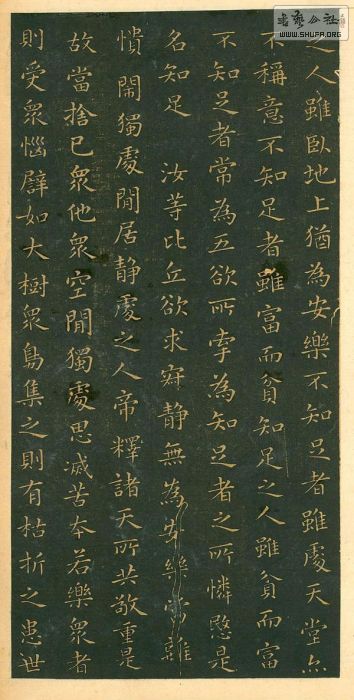 之人雖臥地上猶為安樂不知足者雖處天堂亦
不稱意不知足者雖富而貧知足之人雖貧而富
不知足者常為五欲所牽為知足者之所憐愍是
名知足 汝等比丘欲求寂静無為安樂當離
憒閙獨處閒居静處之人帝釋諸天所共敬重是
故當捨已衆他衆空閒獨處思滅苦本若樂衆者
則受衆惱譬如大樹衆鳥集之則有枯折之患世
书艺公社
WWW.SHUFA.ORG